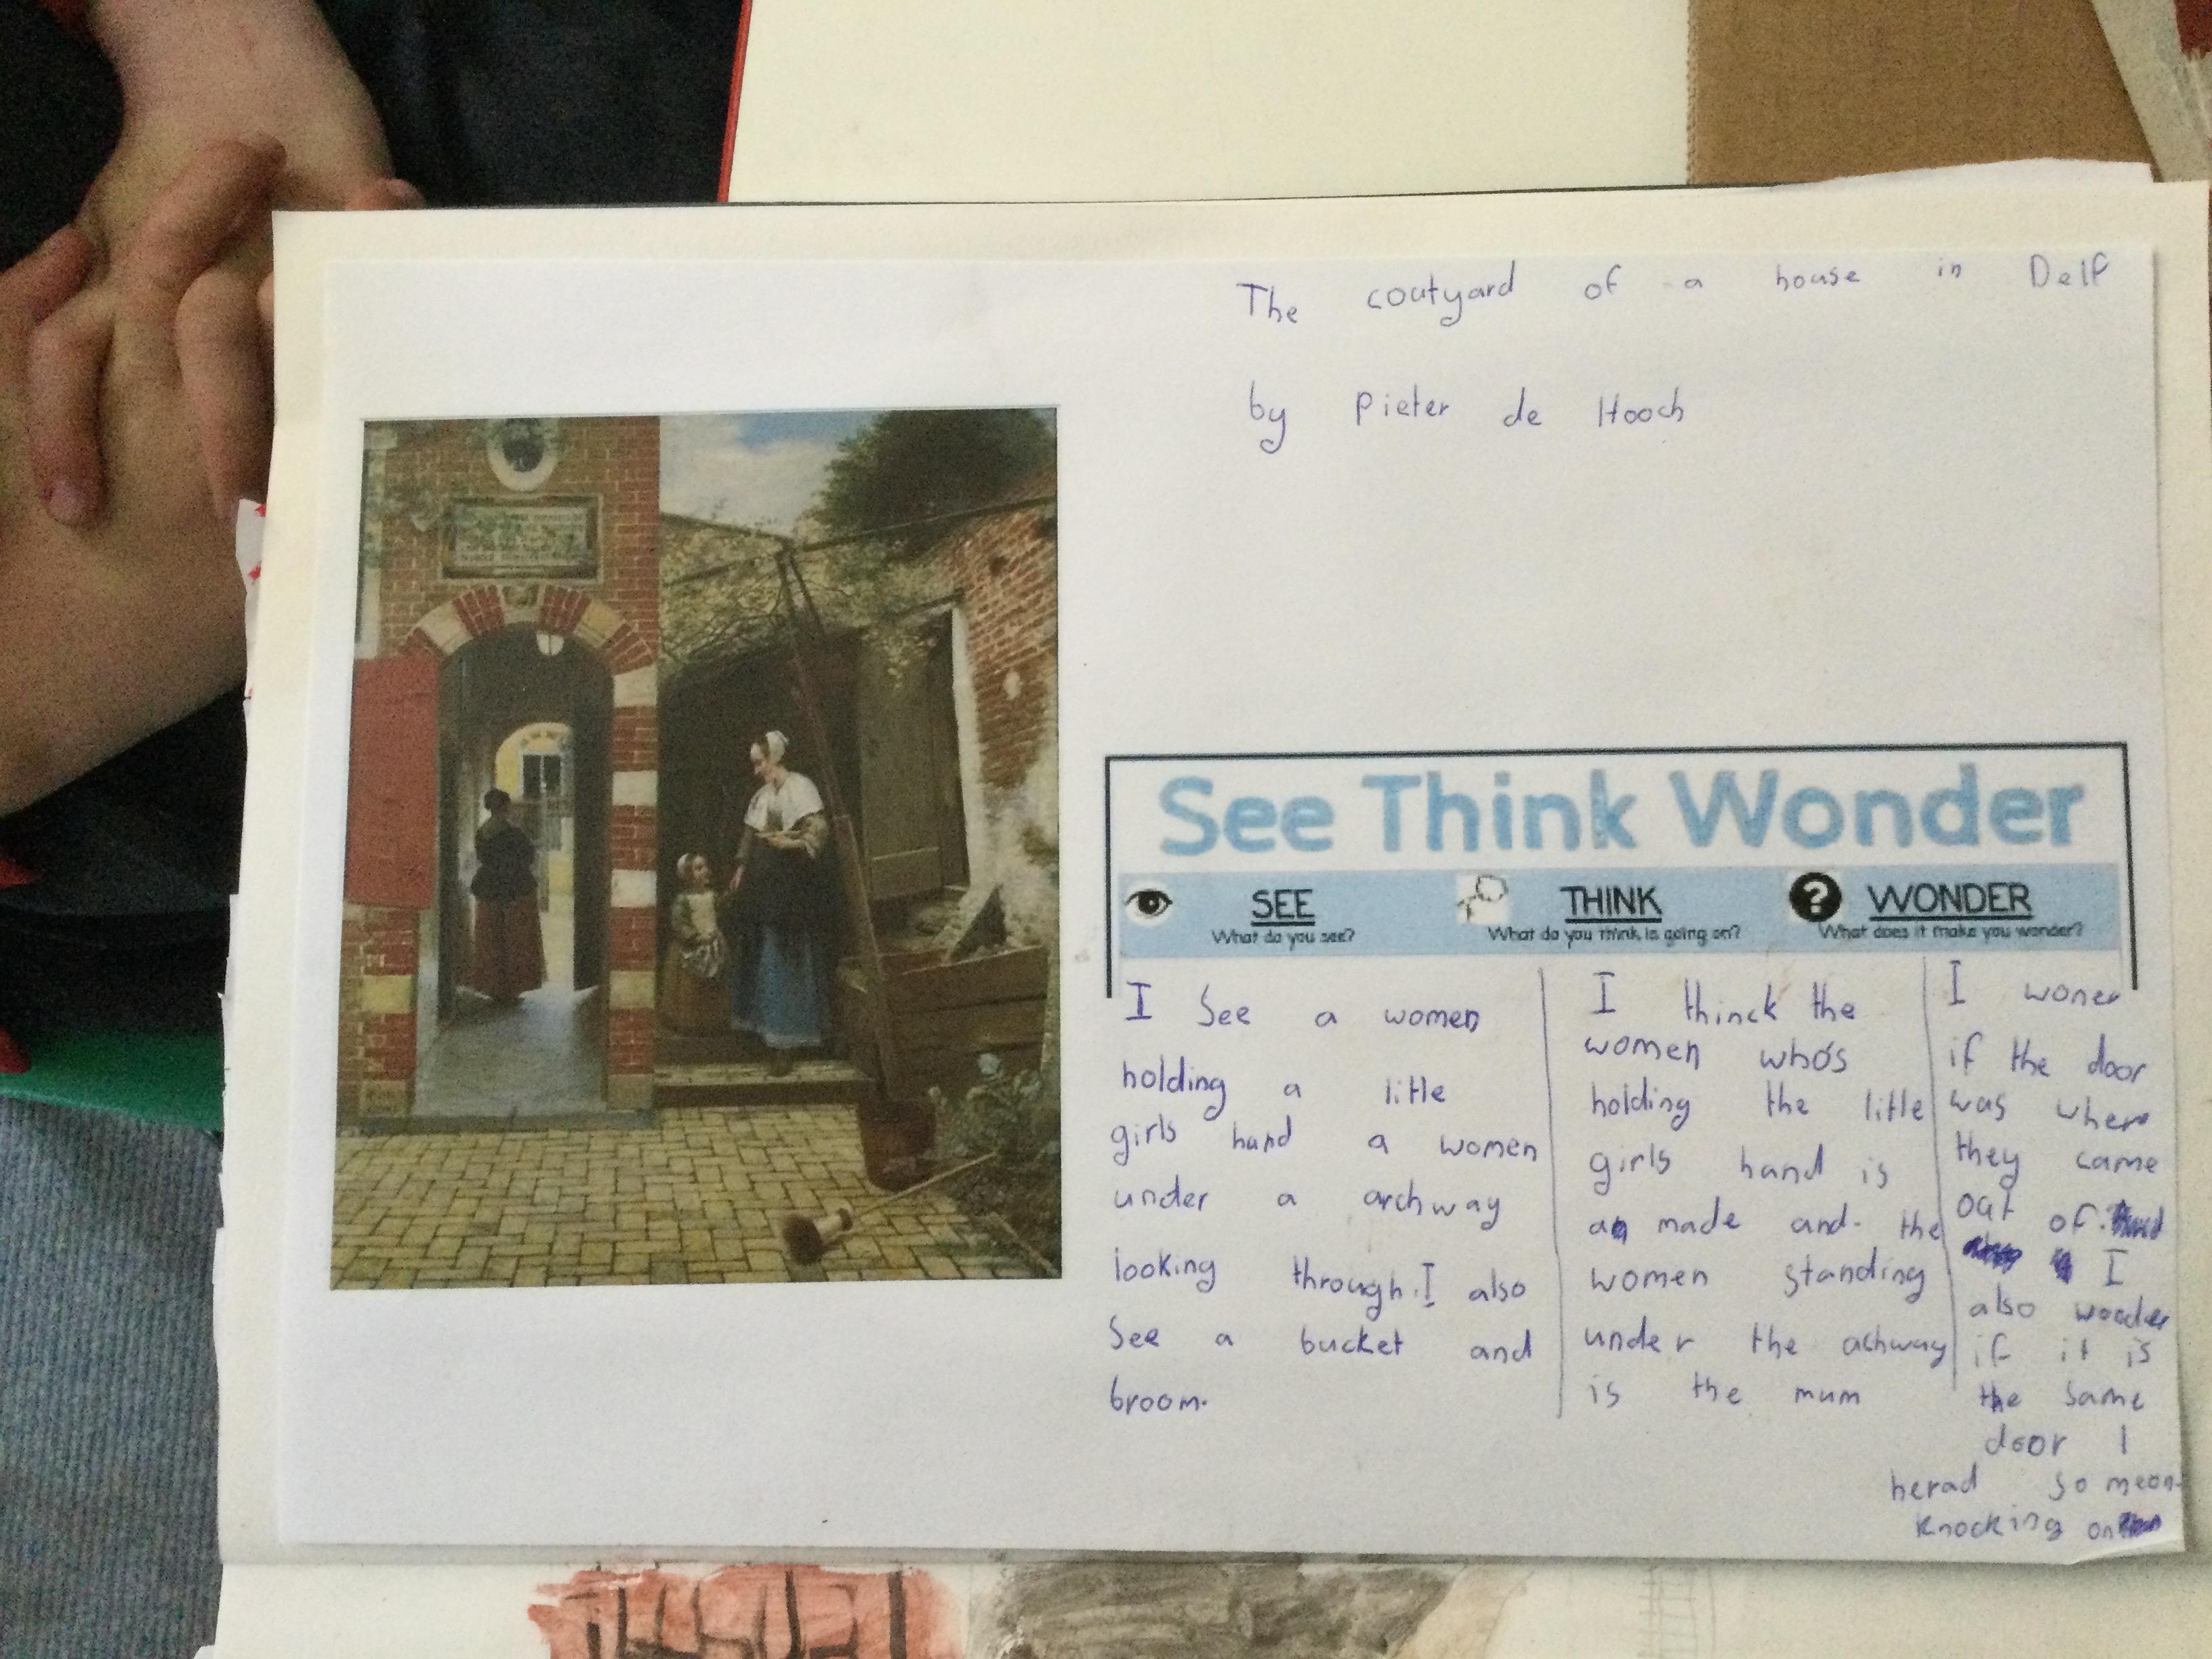 The coutyard of a house in Delf
by Pieter de Hooch
See Think Wonder
SEE
What do you see?
THINK
What do you think is going on?
WONDER
What does it make you wonder?
I See a women
holding a little
girls hand a women
under a archway
looking through. I also
See a bucket and
broom.
I thinck the
women who's
holding the little
girls hand is
a made and the
women standing
under the achway
is the mum
I woner
if the door
was where
they came
out of.
I
also wonder
if it is
the same
door I
herad someon
knocking on